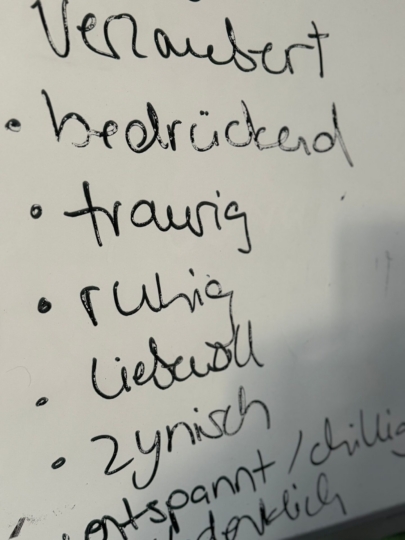 Verzaubert
• bedrückend
• traurig
• ruhig
• liebevoll
• zynisch
entspannt / chillig